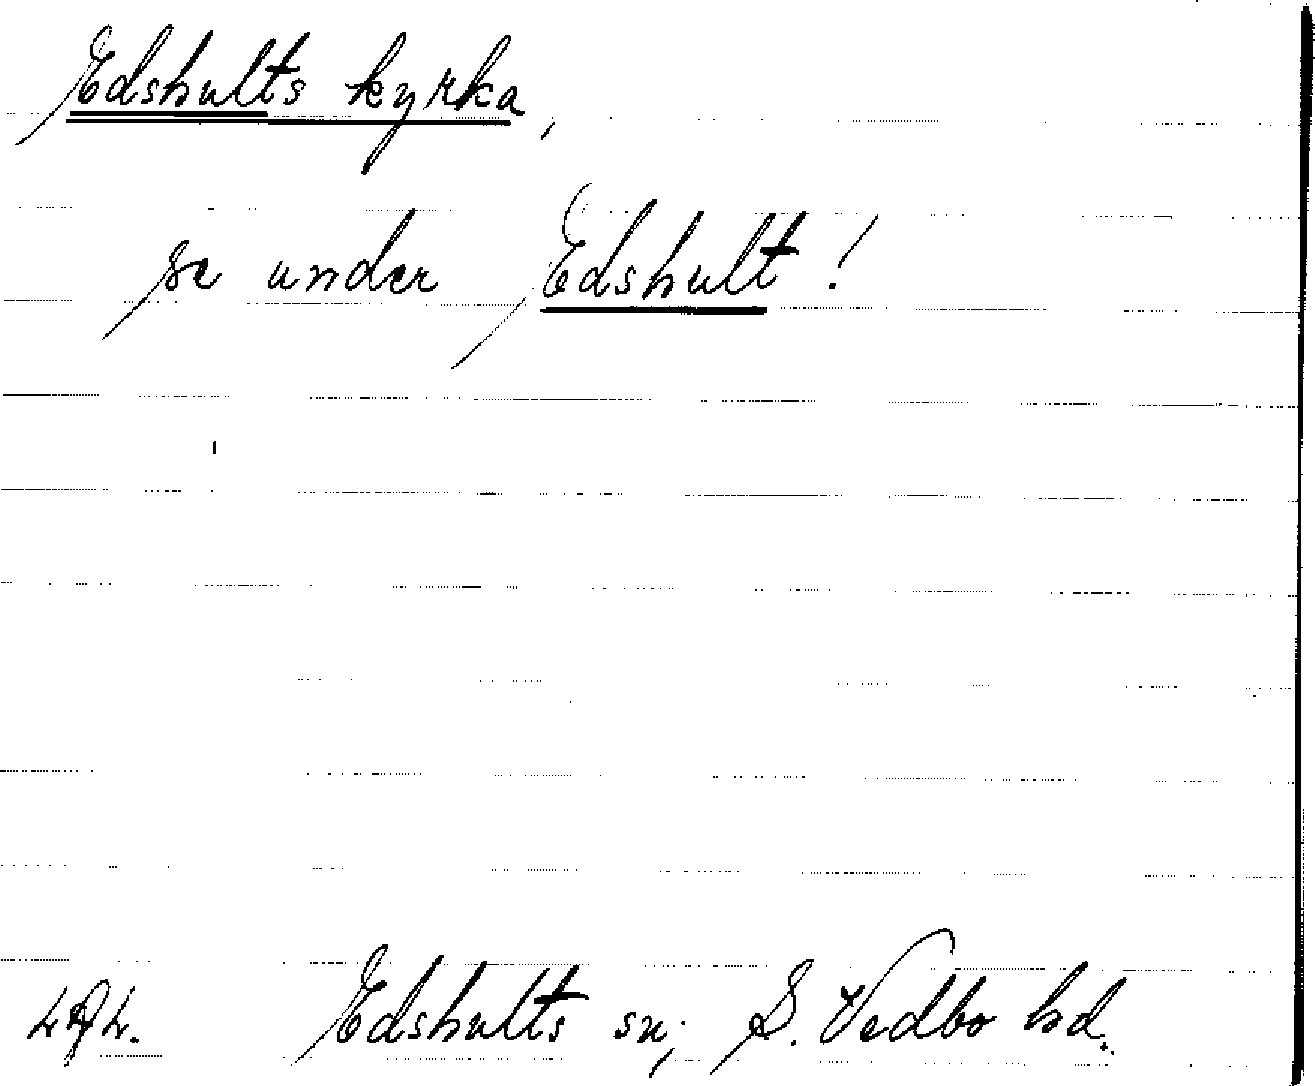 Edshults kyrka,
se under Edshult!
Edshults sn; S. Vedbo hd.